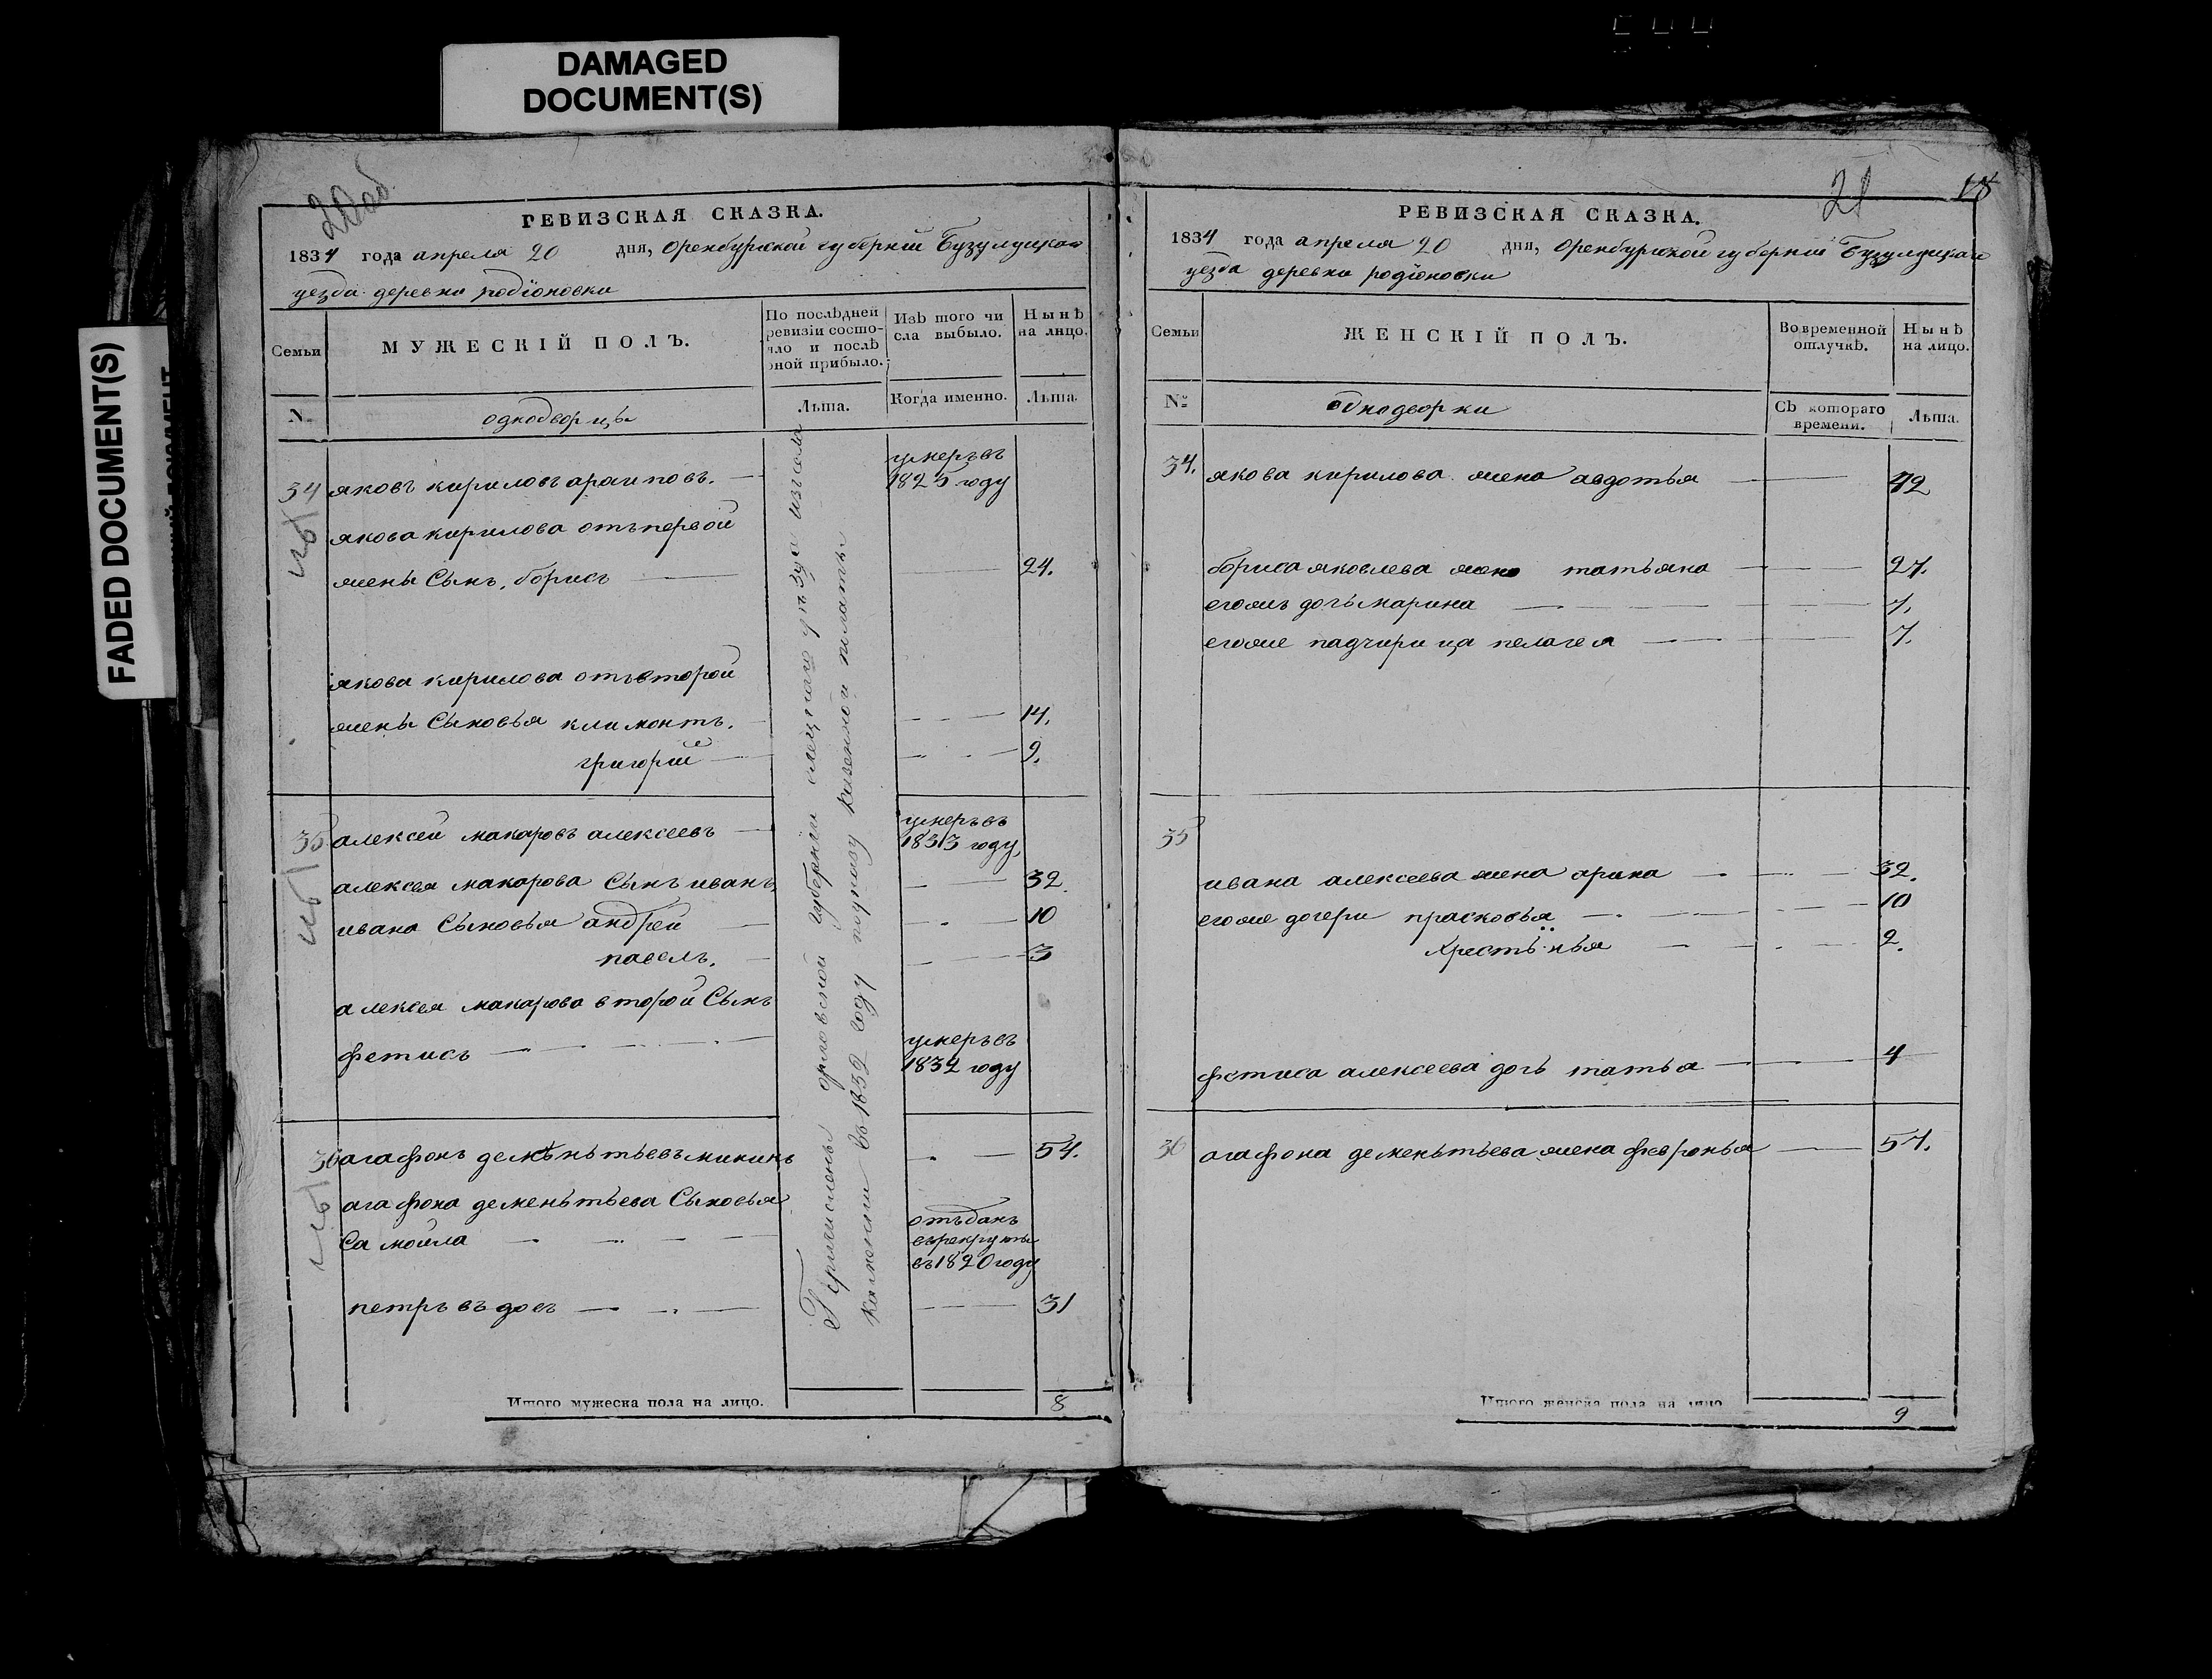 DAMAGED
DOCUMENT(S)
FADED DOCUMENT(S)
20об
РЕВИЗСКАЯ СКАЗКА.
1834 года апреля 20 дня, Оренбургской губернiи Бузулуцкаго
уезда деревни родiоновки
Семьи
МУЖЕСКIЙ ПОЛЪ.
По послѣдней
ревизiи состо-
яло и послѣ
оной прибыло.
Изъ того чи
сла выбыло.
Нынѣ
на лицо.
№
однодворцы
Лѣта.
Когда именно.
Лѣта.
34 яковъ кириловъ араиповъ.
умеръ въ
1825 году
якова кирилова отъ первой
жены Сынъ, борисъ 24.
якова кирилова отъ второй
жены Сыновья климонтъ. 14.
григорiй 9.
35 алексей макаровъ алексеевъ
умеръ въ
1833 году,
алексея макарова Сынъ иванъ, 32.
ивана Сыновья андрей 10
павелъ. 3
алексея макарова второй Сынъ
фетисъ
умеръ въ
1832 году
36 агафонъ деменьтьевъ микинъ 54.
агафона деменьтьева Сыновья
Самойла
отъданъ
въ рекруты
въ 1820 году
петръ въдовъ 31
Причислены орловской губернiи елецкаго уѣзда изъ села
въ 1832 году по указу казенной палаты
Итого мужеска пола на лицо. 8
21
18
РЕВИЗСКАЯ СКАЗКА.
1834 года апреля 20 дня, Оренбургской губернiи Бузулуцкаго
уезда деревни родiоновки
Семьи
ЖЕНСКIЙ ПОЛЪ.
Во временной
отлучкѣ.
Нынѣ
на лицо.
№
однодворки
Съ котораго
времени.
Лѣта.
34. якова кирилова жена авдотья 42
бориса яковлева жена татьяна 27.
егожъ дочь марина 7.
егоже падчирица пелагея 7.
35
ивана алексеева жена арина 32.
егоже дочери прасковья 10
Хрестинья 2.
фетиса алексеева дочь татья 4
36 агафона деменьтьева жена февронья 57.
Итого женска пола на лицо 9